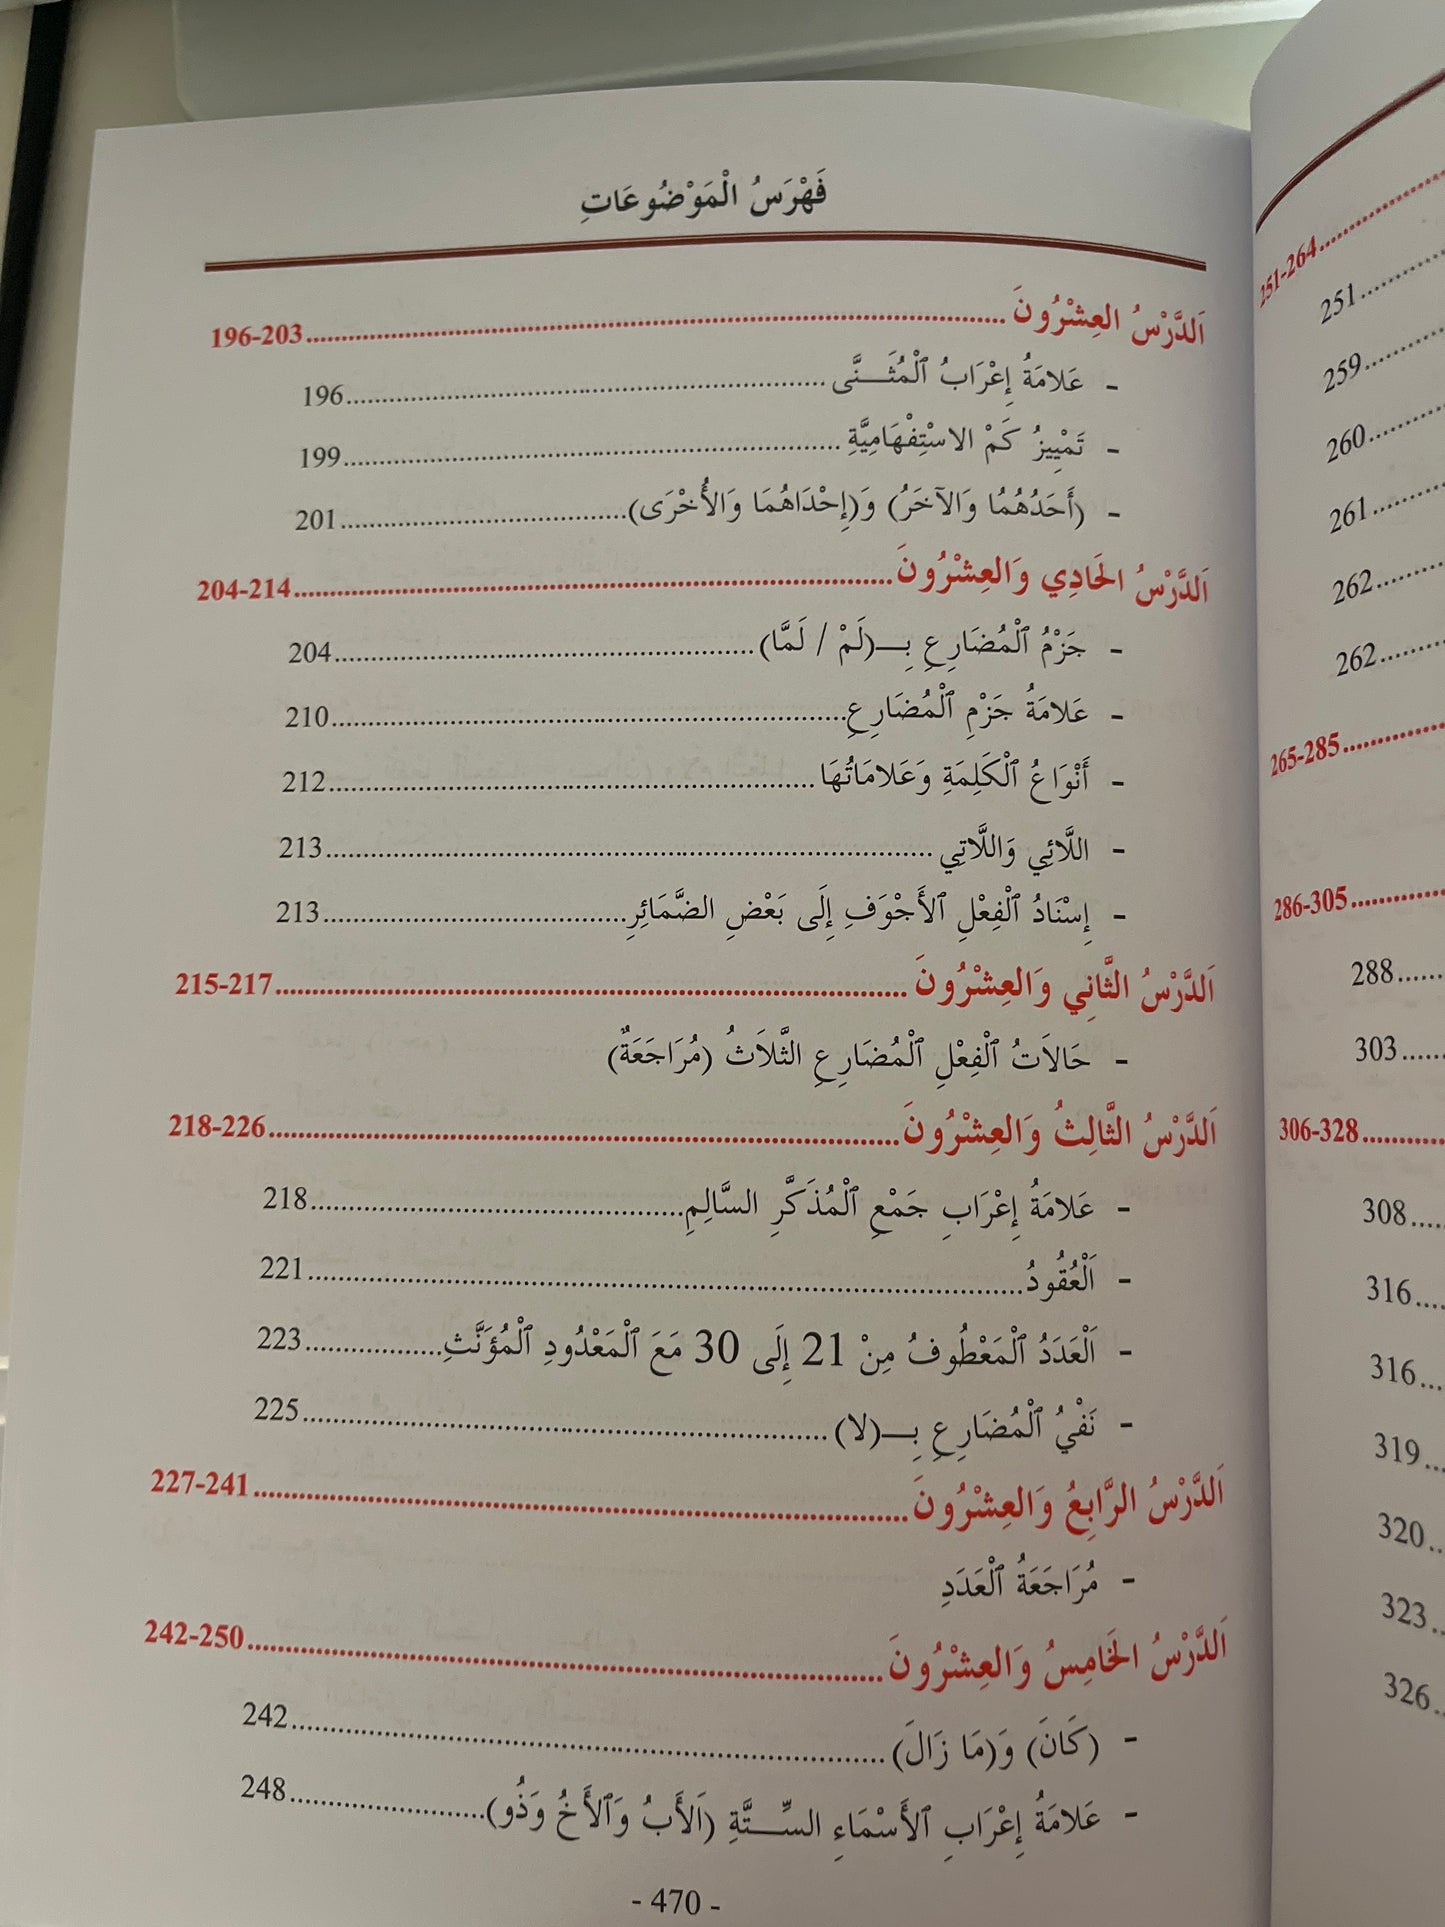 فَهْرَسُ الْمَوْضُوعَاتِ
اَلدَّرْسُ العِشْرُونَ..........196-203
- عَلامَةُ إِعْرَابُ ٱلْمُثَنَّى..........196
- تَمْيِيزُ كَمْ الاسْتِفْهَامِيَّةِ..........199
- (أَحَدُهُمُا وَالآخَرُ) وَ(إِحْدَاهُمَا وَالأُخْرَى)..........201
اَلدَّرْسُ الحَادِي وَالعِشْرُونَ..........204-214
- جَزْمُ ٱلْمُضَارِعِ بِـ(لَمْ / لَمَّا)..........204
- عَلامَةُ جَزْمِ ٱلْمُضَارِعِ..........210
- أَنْوَاعُ ٱلْكَلِمَةِ وَعَلامَاتُهَا..........212
- اللَّائِي وَاللَّاتِي..........213
- إِسْنَادُ ٱلْفِعْلِ ٱلأَجْوَفِ إِلَى بَعْضِ الضَّمَائِرِ..........213
اَلدَّرْسُ الثَّانِي وَالعِشْرُونَ..........215-217
- حَالاَتُ ٱلْفِعْلِ ٱلْمُضَارِعِ الثَّلاَثُ (مُرَاجَعَةٌ)
اَلدَّرْسُ الثَّالِثُ وَالعِشْرُونَ..........218-226
- عَلامَةُ إِعْرَابِ جَمْعِ ٱلْمُذَكَّرِ السَّالِمِ..........218
- اَلْعُقُودُ..........221
- اَلْعَدَدُ ٱلْمَعْطُوفُ مِنْ 21 إِلَى 30 مَعَ ٱلْمَعْدُودِ ٱلْمُؤَنَّثِ..........223
- نَفْيُ ٱلْمُضَارِعِ بِـ(لا)..........225
اَلدَّرْسُ الرَّابِعُ وَالعِشْرُونَ..........227-241
- مُرَاجَعَةُ ٱلْعَدَدِ
اَلدَّرْسُ الخَامِسُ وَالعِشْرُونَ..........242-250
- (كَانَ) وَ(مَا زَالَ)..........242
- عَلامَةُ إِعْرَابِ ٱلأَسْمَاءِ السِّتَّةِ (اَلأَبُ وَٱلأَخُ وَذُو)..........248
- 470 -
251-264
251
259
260
261
262
262
265-285
286-305
288
303
306-328
308
316
316
319
320
323
326